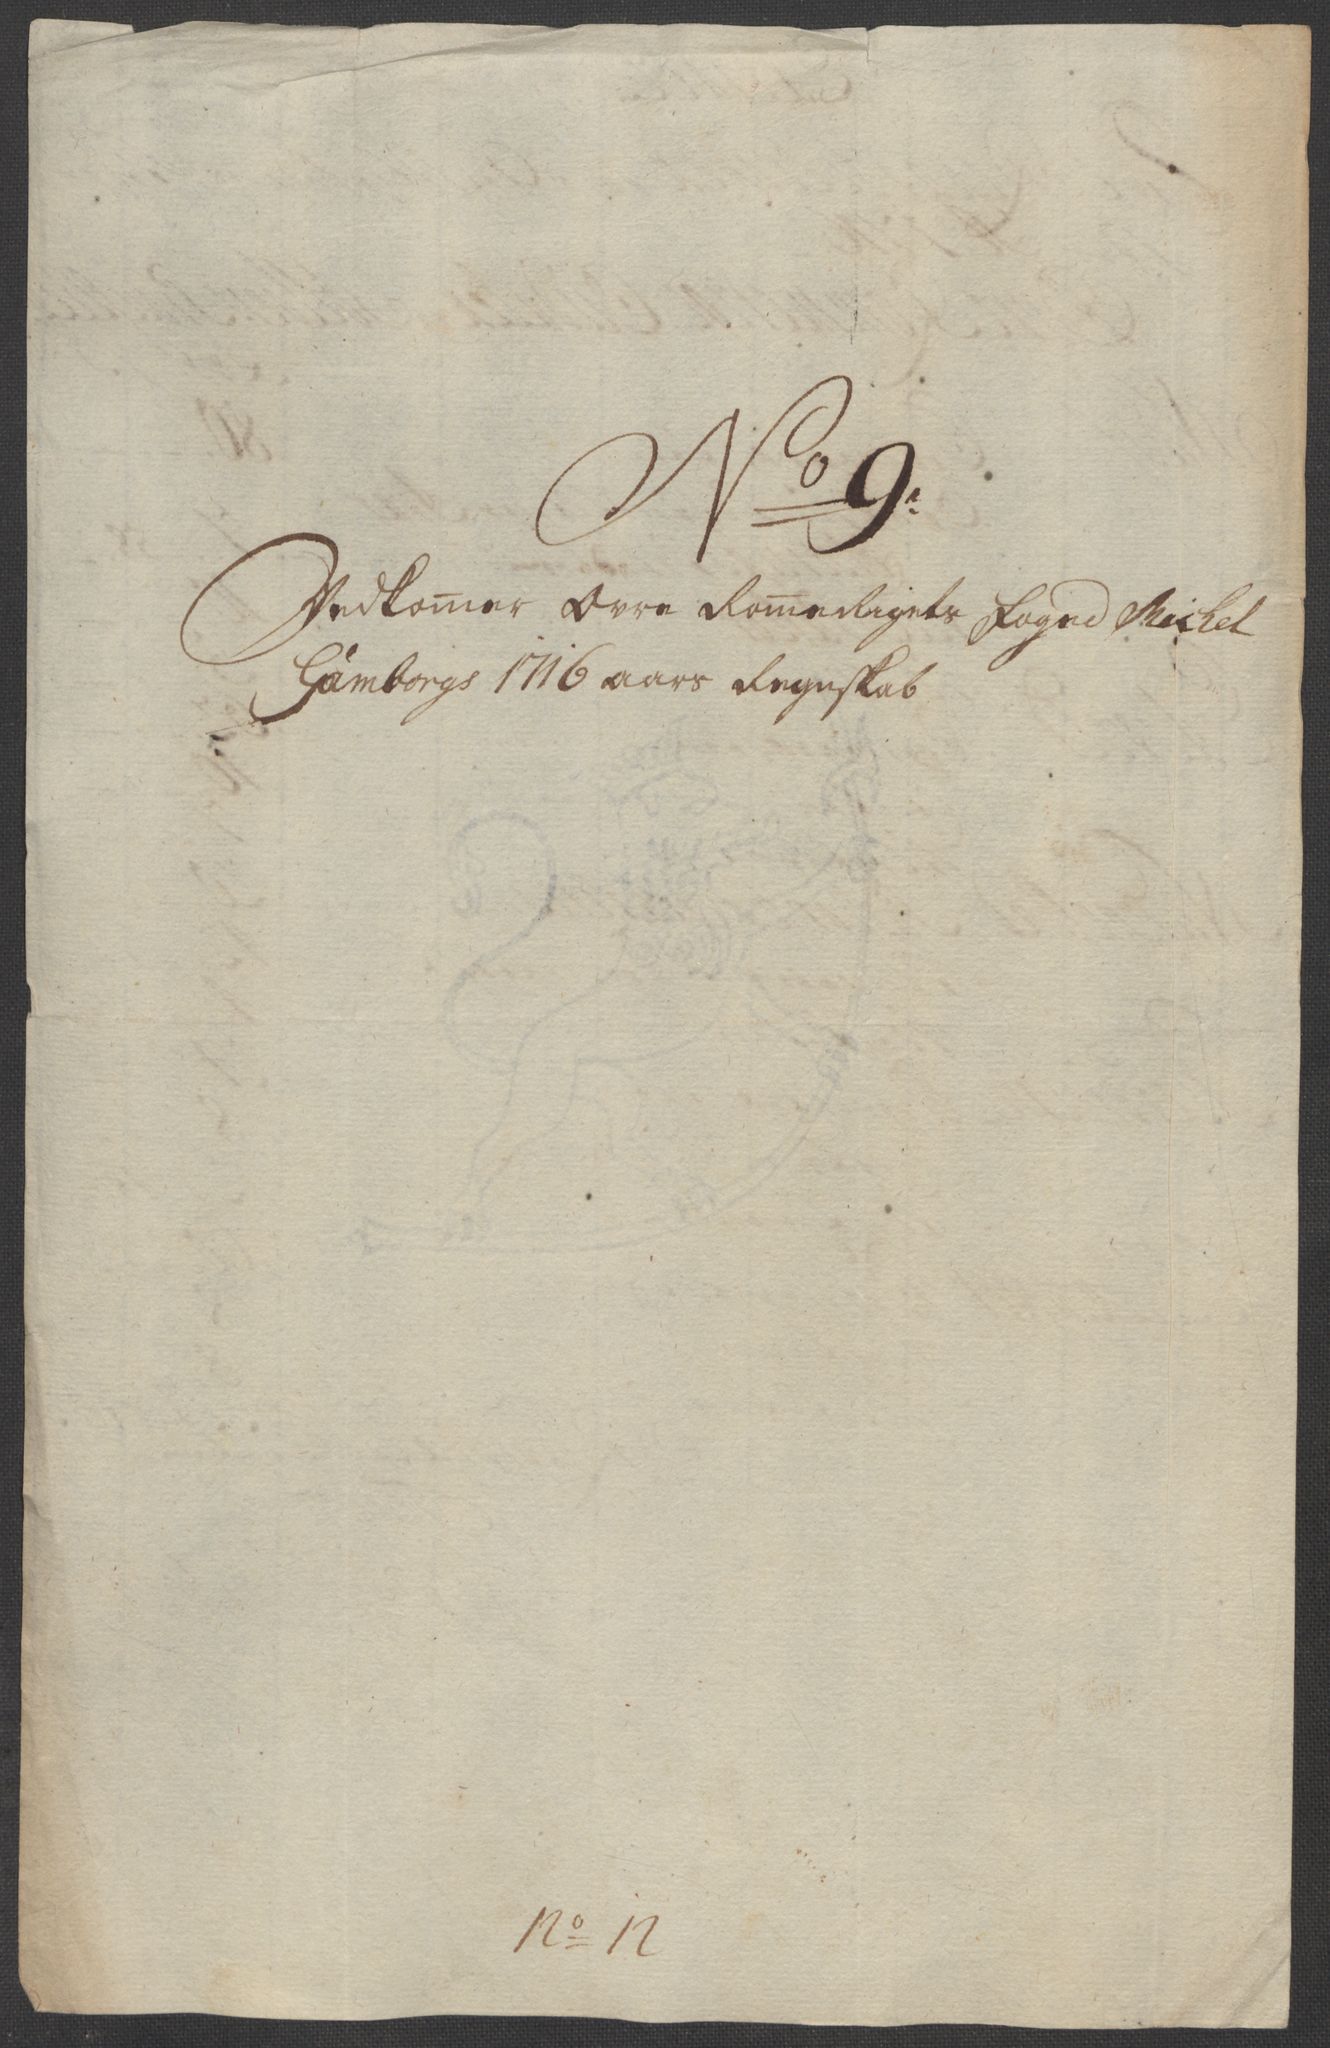 No 9.
Vedkom̅er Øvre Rom̅erigets Foged Michel
Hamborgs 1716 aars Regnskab
No 12